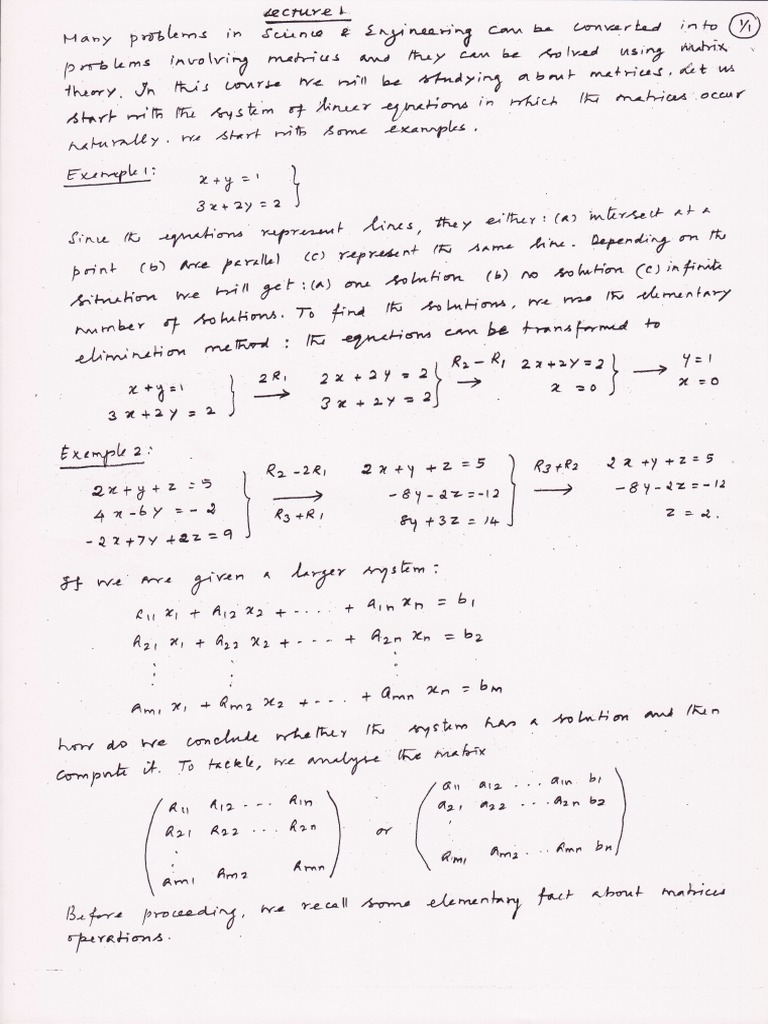 Lecture 1
1/1
Many problems in Science & Engineering can be converted into
problems involving matrices and they can be solved using matrix
theory. In this course we will be studying about matrices. Let us
start with the system of linear equations in which the matrices occur
naturally. We start with some examples.
Example 1: x + y = 1
3x + 2y = 2 }
Since the equations represent lines, they either : (a) intersect at a
point (b) are parallel (c) represent the same line. Depending on the
situation we will get : (a) one solution (b) no solution (c) infinite
number of solutions. To find the solutions, we use the elementary
elimination method : the equations can be transformed to
x + y = 1 } 2R1 2x + 2y = 2 } R2 - R1 2x + 2y = 2 } → y = 1
3x + 2y = 2 → 3x + 2y = 2 → x = 0 x = 0
Example 2:
2x + y + z = 5 } R2 - 2R1 2x + y + z = 5 } R3 + R2 2x + y + z = 5
4x - 6y = -2 → -8y - 2z = -12 → -8y - 2z = -12
-2x + 7y + 2z = 9 R3 + R1 8y + 3z = 14 z = 2.
If we are given a larger system :
a11 x1 + a12 x2 + .... + a1n xn = b1
a21 x1 + a22 x2 + .... + a2n xn = b2
⋮ ⋮ ⋮
am1 x1 + am2 x2 + ... + amn xn = bm
how do we conclude whether the system has a solution and then
compute it. To tackle, we analyse the matrix
( a11 a12 ... a1n ) ( a11 a12 ... a1n b1 )
a21 a22 ... a2n or a21 a22 ... a2n b2
⋮ ⋮
am1 am2 amn am1 am2 ... amn bn
Before proceeding, we recall some elementary fact about matrices
operations.